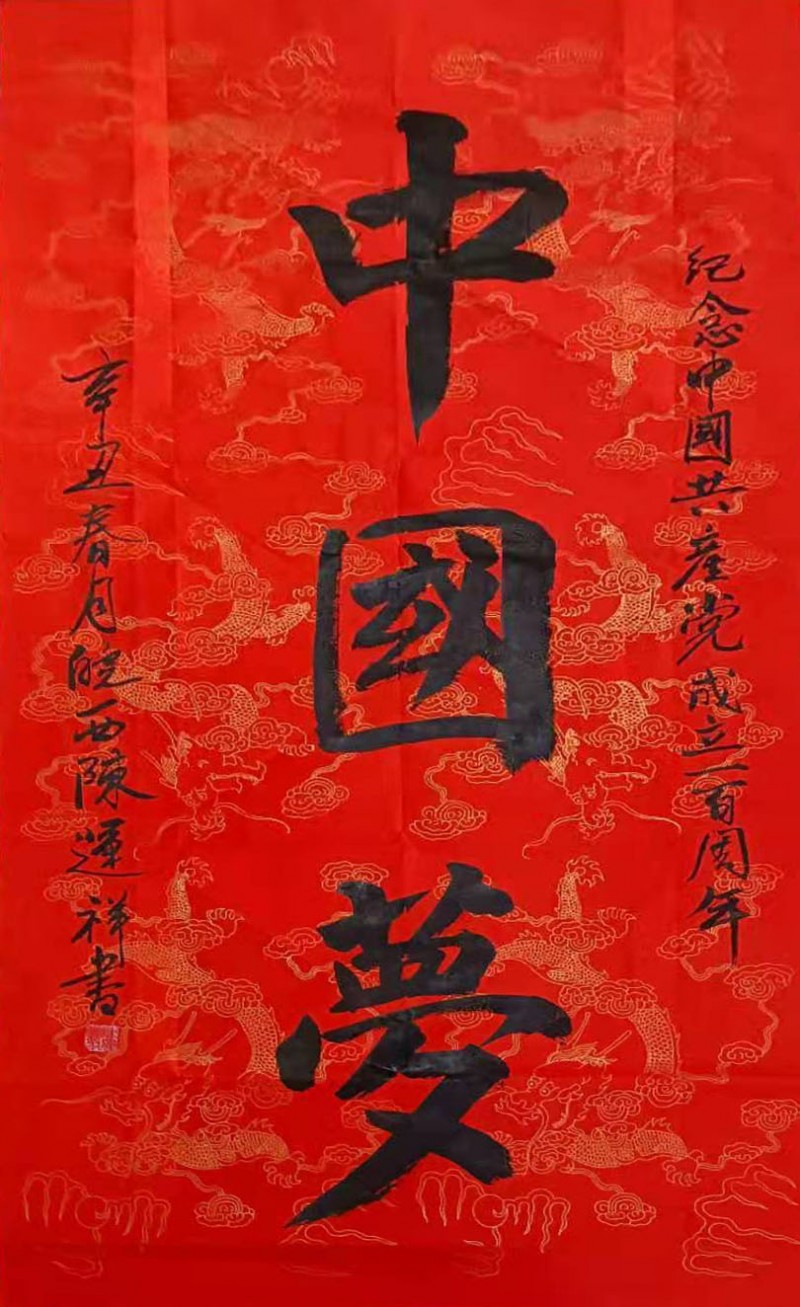 紀念中國共產党成立一百周年
中國夢
辛丑春月皖西陳運祥書